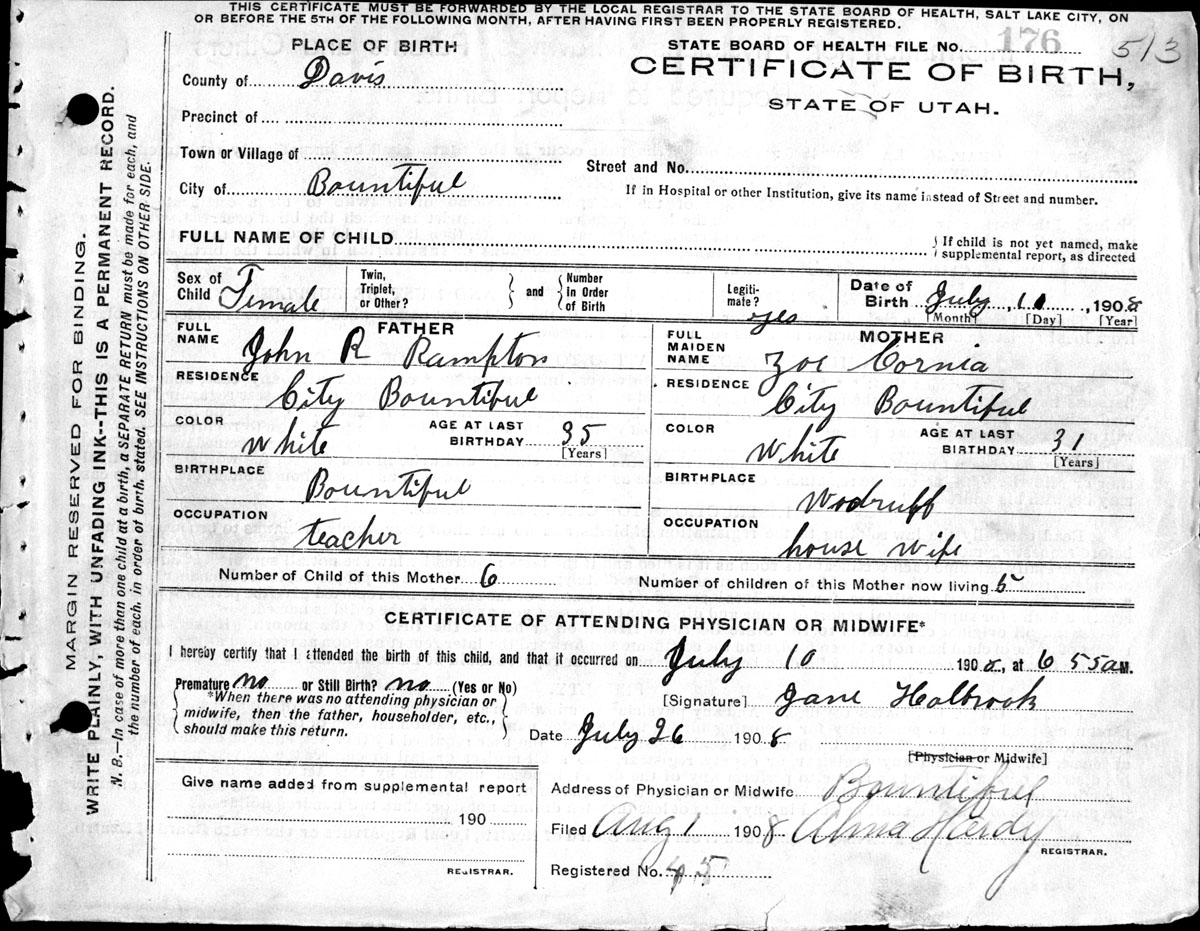 THIS CERTIFICATE MUST BE FORWARDED BY THE LOCAL REGISTRAR TO THE STATE BOARD OF HEALTH, SALT LAKE CITY, ON
OR BEFORE THE 5TH OF THE FOLLOWING MONTH, AFTER HAVING FIRST BEEN PROPERLY REGISTERED.
PLACE OF BIRTH
STATE BOARD OF HEALTH FILE No. 176 513
County of Davis
CERTIFICATE OF BIRTH,
STATE OF UTAH.
Precinct of
Town or Village of
Street and No.
City of Bountiful
If in Hospital or other Institution, give its name instead of Street and number.
FULL NAME OF CHILD
If child is not yet named, make
supplemental report, as directed
Sex of Child Female
Twin, Triplet, or Other?
and
Number in Order of Birth
Legiti- mate? yes
Date of Birth July, 10, 1908
[Month] [Day] [Year]
FATHER
FULL NAME John R Rampton
RESIDENCE City Bountiful
COLOR White AGE AT LAST BIRTHDAY 35
[Years]
BIRTHPLACE Bountiful
OCCUPATION teacher
MOTHER
FULL MAIDEN NAME Zoe Cornia
RESIDENCE City Bountiful
COLOR White AGE AT LAST BIRTHDAY 31
[Years]
BIRTHPLACE Wodruff
OCCUPATION house wife
Number of Child of this Mother 6 Number of children of this Mother now living 5
CERTIFICATE OF ATTENDING PHYSICIAN OR MIDWIFE*
I hereby certify that I attended the birth of this child, and that it occurred on July 10 1908, at 6 55 a M.
Premature no or Still Birth? no (Yes or No)
*When there was no attending physician or
midwife, then the father, householder, etc.,
should make this return.
[Signature] Jane Holbrook
Date July 26 1908
[Physician or Midwife]
Give name added from supplemental report
190
REGISTRAR.
Address of Physician or Midwife Bountiful
Filed Aug 1 1908 Alma Hardy
REGISTRAR.
Registered No. 45
MARGIN RESERVED FOR BINDING.
WRITE PLAINLY, WITH UNFADING INK--THIS IS A PERMANENT RECORD.
N. B.—In case of more than one child at a birth, a SEPARATE RETURN must be made for each, and
the number of each, in order of birth, stated. SEE INSTRUCTIONS ON OTHER SIDE.